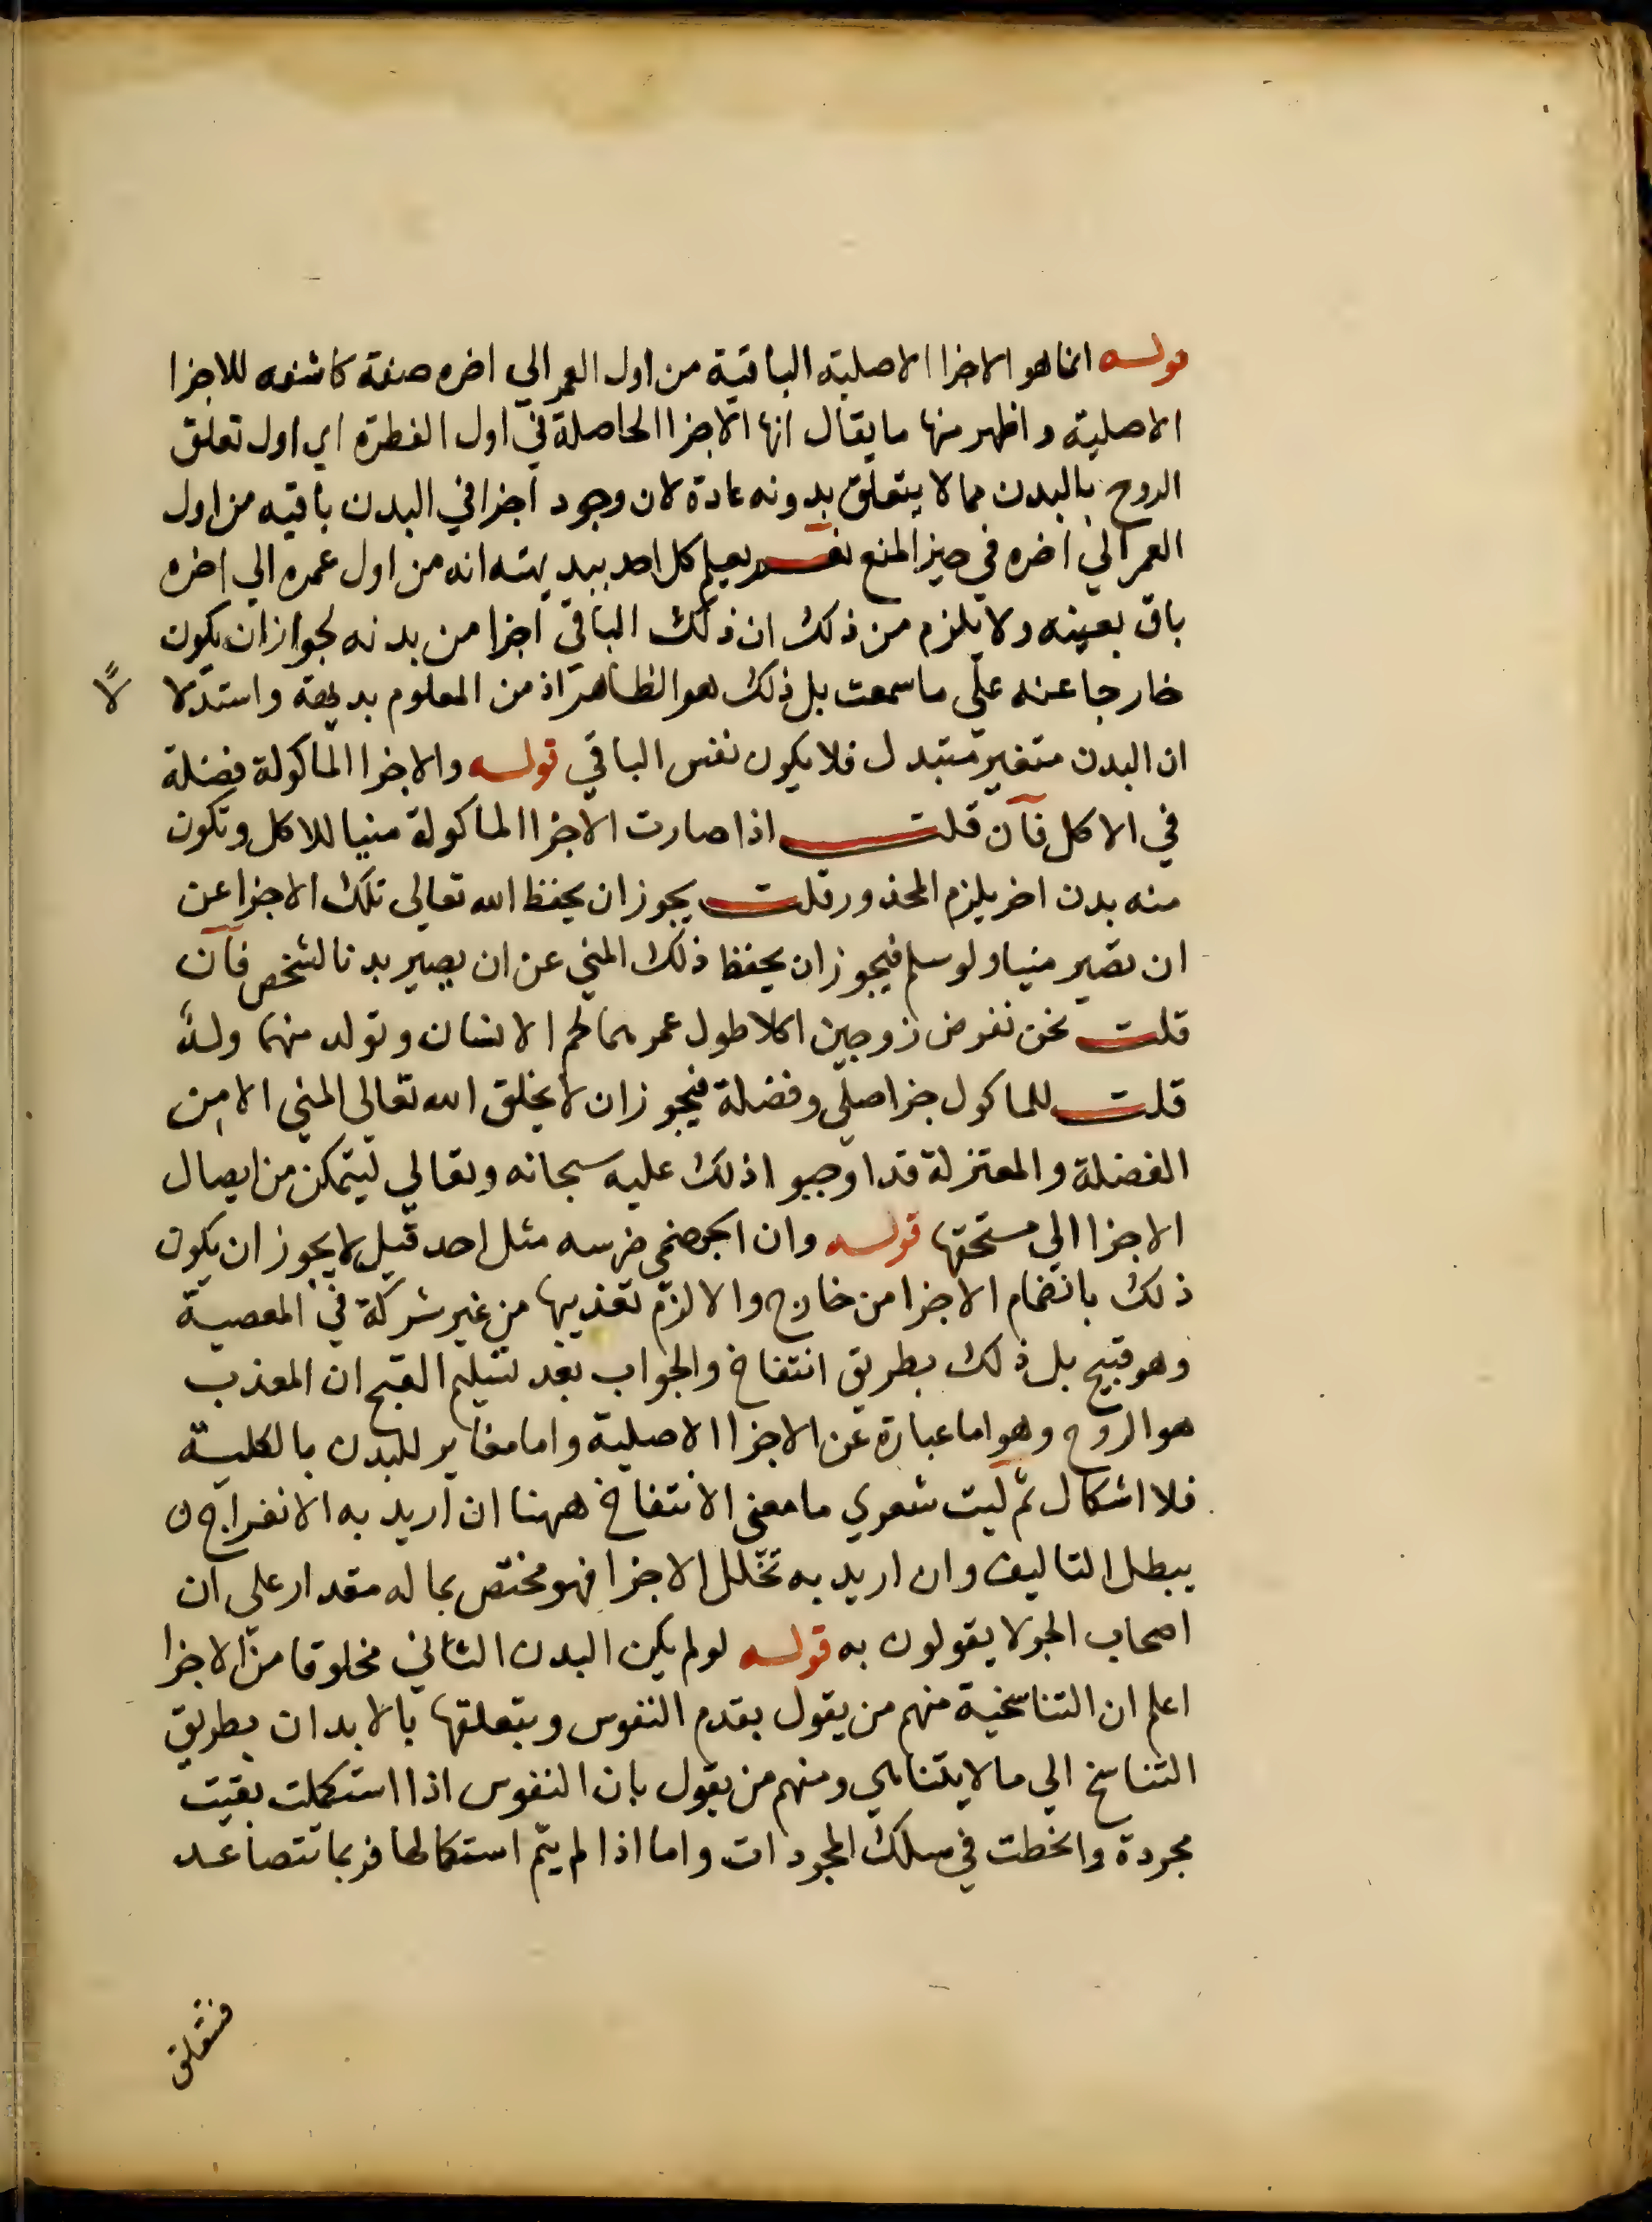 قوله انما هو الاجزا الاصلية الباقية من اول العمر الي اخره صفة كاشفه للاجزا
الاصلية واظهر منها ما يقال انها الاجزا الحاصلة في اول الفطرة اي اول تعلق
الروح بالبدن مما لا يتعلق بدونه عادة لان وجود اجزا في البدن باقيه من اول
العمر الي اخره في حيز المنع نعم يعلم كل احد ببديهته انه من اول عمره الي اخره
باق بعينه ولا يلزم من ذلك ان ذلك الباقي اجزا من بدنه لجواز ان يكون
خارجا عنه علي ما سمعت بل ذلك هو الظاهر اذ من المعلوم بديهة واستدلا لًا
ان البدن متغير متبدل فلا يكون نفس الباقي قوله والاجزا الماكولة فضلة
في الاكل فان قلت اذا صارت الاجزا الماكولة منيا للاكل وتكون
منه بدن اخر يلزم المحذور قلت يجوز ان يحفظ الله تعالى تلك الاجزا عن
ان تصير منيا ولو سلم فيجوز ان يحفظ ذلك المني عن ان يصير بدنا لشخص فان
قلت نحن نفرض زوجين اكلا طول عمرهما لحم الانسان وتولد منهما ولدٌ
قلت للماكول جز اصلي وفضلة فيجوز ان لا يخلق الله تعالى المني الا من
الفضلة والمعتزلة قد اوجبوا ذلك عليه سبحانه وتعالي ليتمكن من ايصال
الاجزا الي مستحقها قوله وان الجهنمي ضرسه مثل احد قيل لا يجوز ان يكون
ذلك بانضمام الاجزا من خارج والا لزم تعذيبها من غير شركة في المعصية
وهو قبيح بل ذلك بطريق انتفاخ والجواب بعد تسليم القبح ان المعذب
هو الروح وهو اما عبارة عن الاجزا الاصلية واما مغاير للبدن بالكلية
فلا اشكال ثم ليت شعري ما معنى الانتفاخ ههنا ان اريد به الانفراج ن
يبطل التاليف وان اريد به تخلل الاجزا فهو مختص بما له مقدار على ان
اصحاب الجز لا يقولون به قوله لو لم يكن البدن الثاني مخلوقا من الاجزا
اعلم ان التناسخية منهم من يقول بقدم النفوس وبتعلقها بالابدان بطريق
التناسخ الي ما لا يتناهي ومنهم من يقول بان النفوس اذا استكملت بقيت
مجردة وانخطت في سلك المجردات واما اذا لم يتم استكمالها فربما تتصاعد
فتتعلق